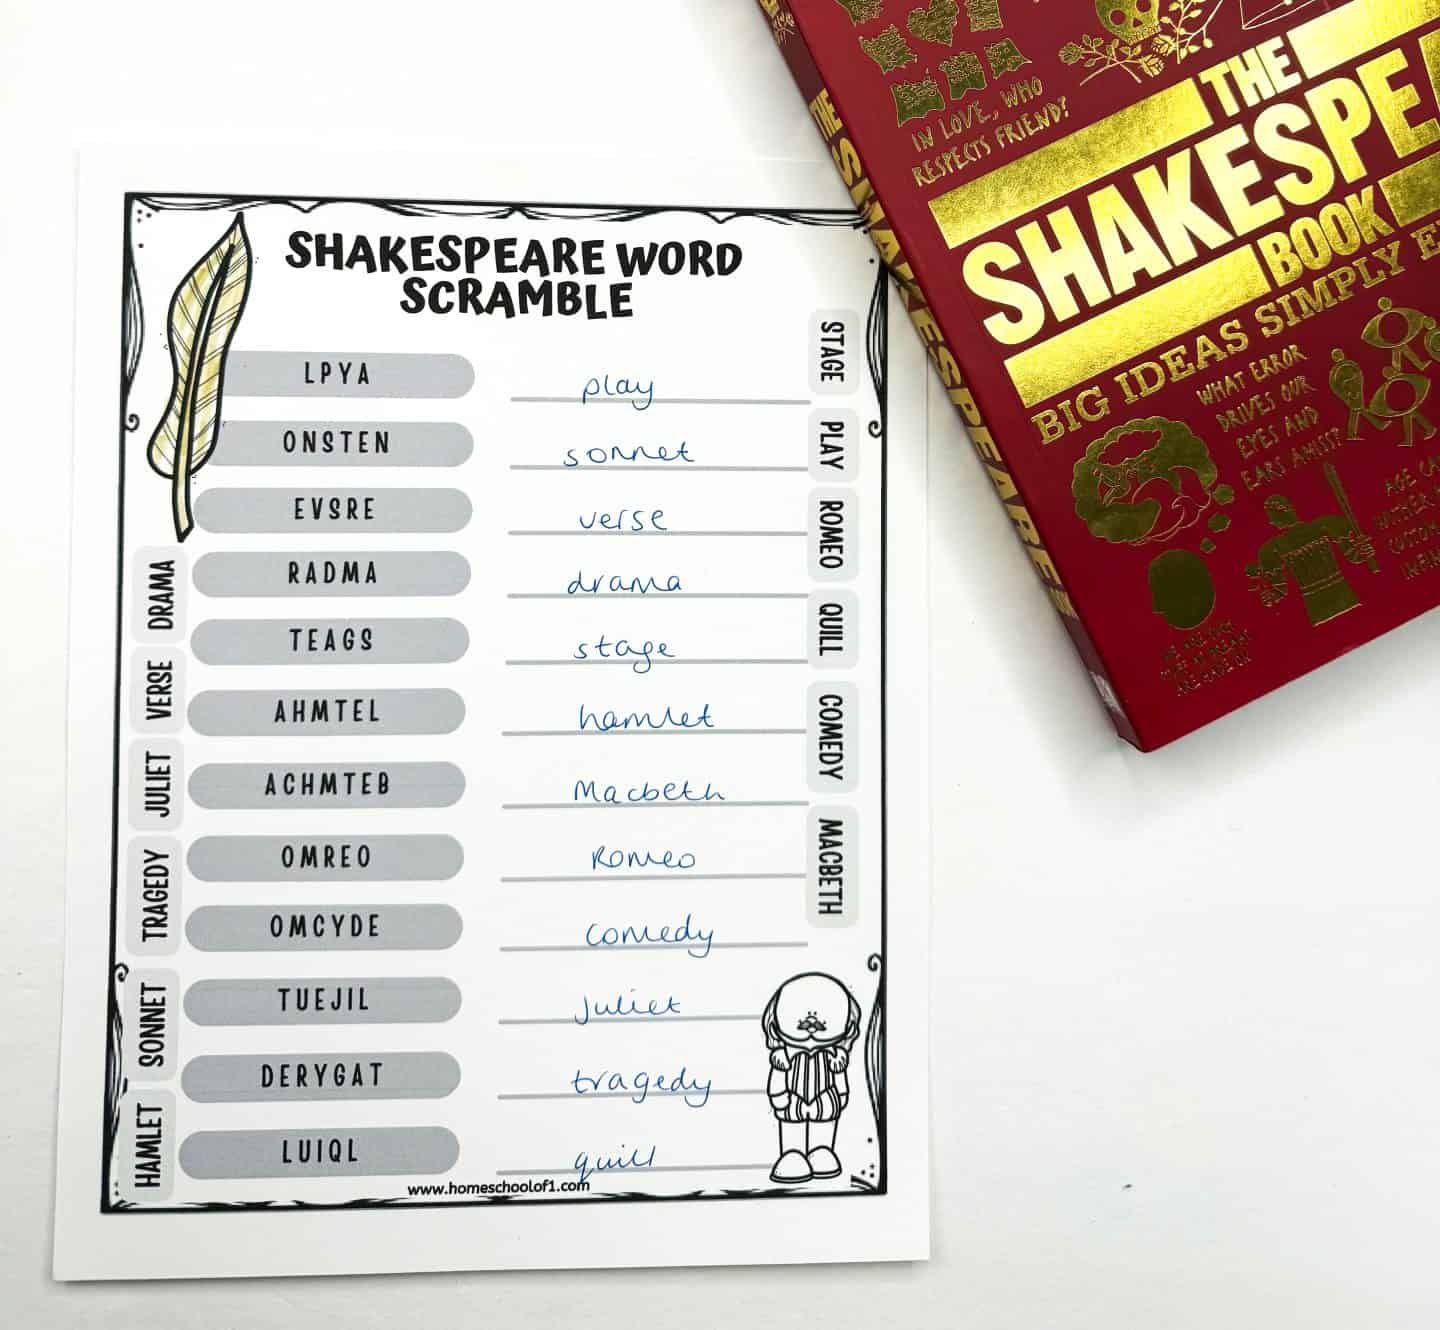 SHAKESPEARE WORD
SCRAMBLE
LPYA play
ONSTEN sonnet
EVSRE verse
RADMA drama
TEAGS stage
AHMTEL hamlet
ACHMTEB Macbeth
OMREO Romeo
OMCYDE comedy
TUEJIL Juliet
DERYGAT tragedy
LUIQL quill
DRAMA
VERSE
JULIET
TRAGEDY
SONNET
HAMLET
STAGE
PLAY
ROMEO
QUILL
COMEDY
MACBETH
www.homeschoolof1.com
THE SHAKESPEARE
IN LOVE, WHO
RESPECTS FRIEND?
THE
SHAKESPE
BOOK
BIG IDEAS SIMPLY
WHAT ERROR
DRIVES OUR
EYES AND
EARS AMISS?
AGE
CUSTOM
WE ARE SUCH
STUFF AS DREAMS
ARE MADE ON